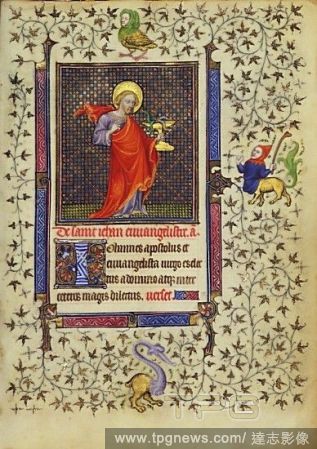 De saint iehan euuangeliste. a.
Iohannes apostolus et
euuangelista uirgo est elec
tus a domino atq; inter
ceteros magis dilectus. verset
TPG
www.tpgnews.com/ 達志影像